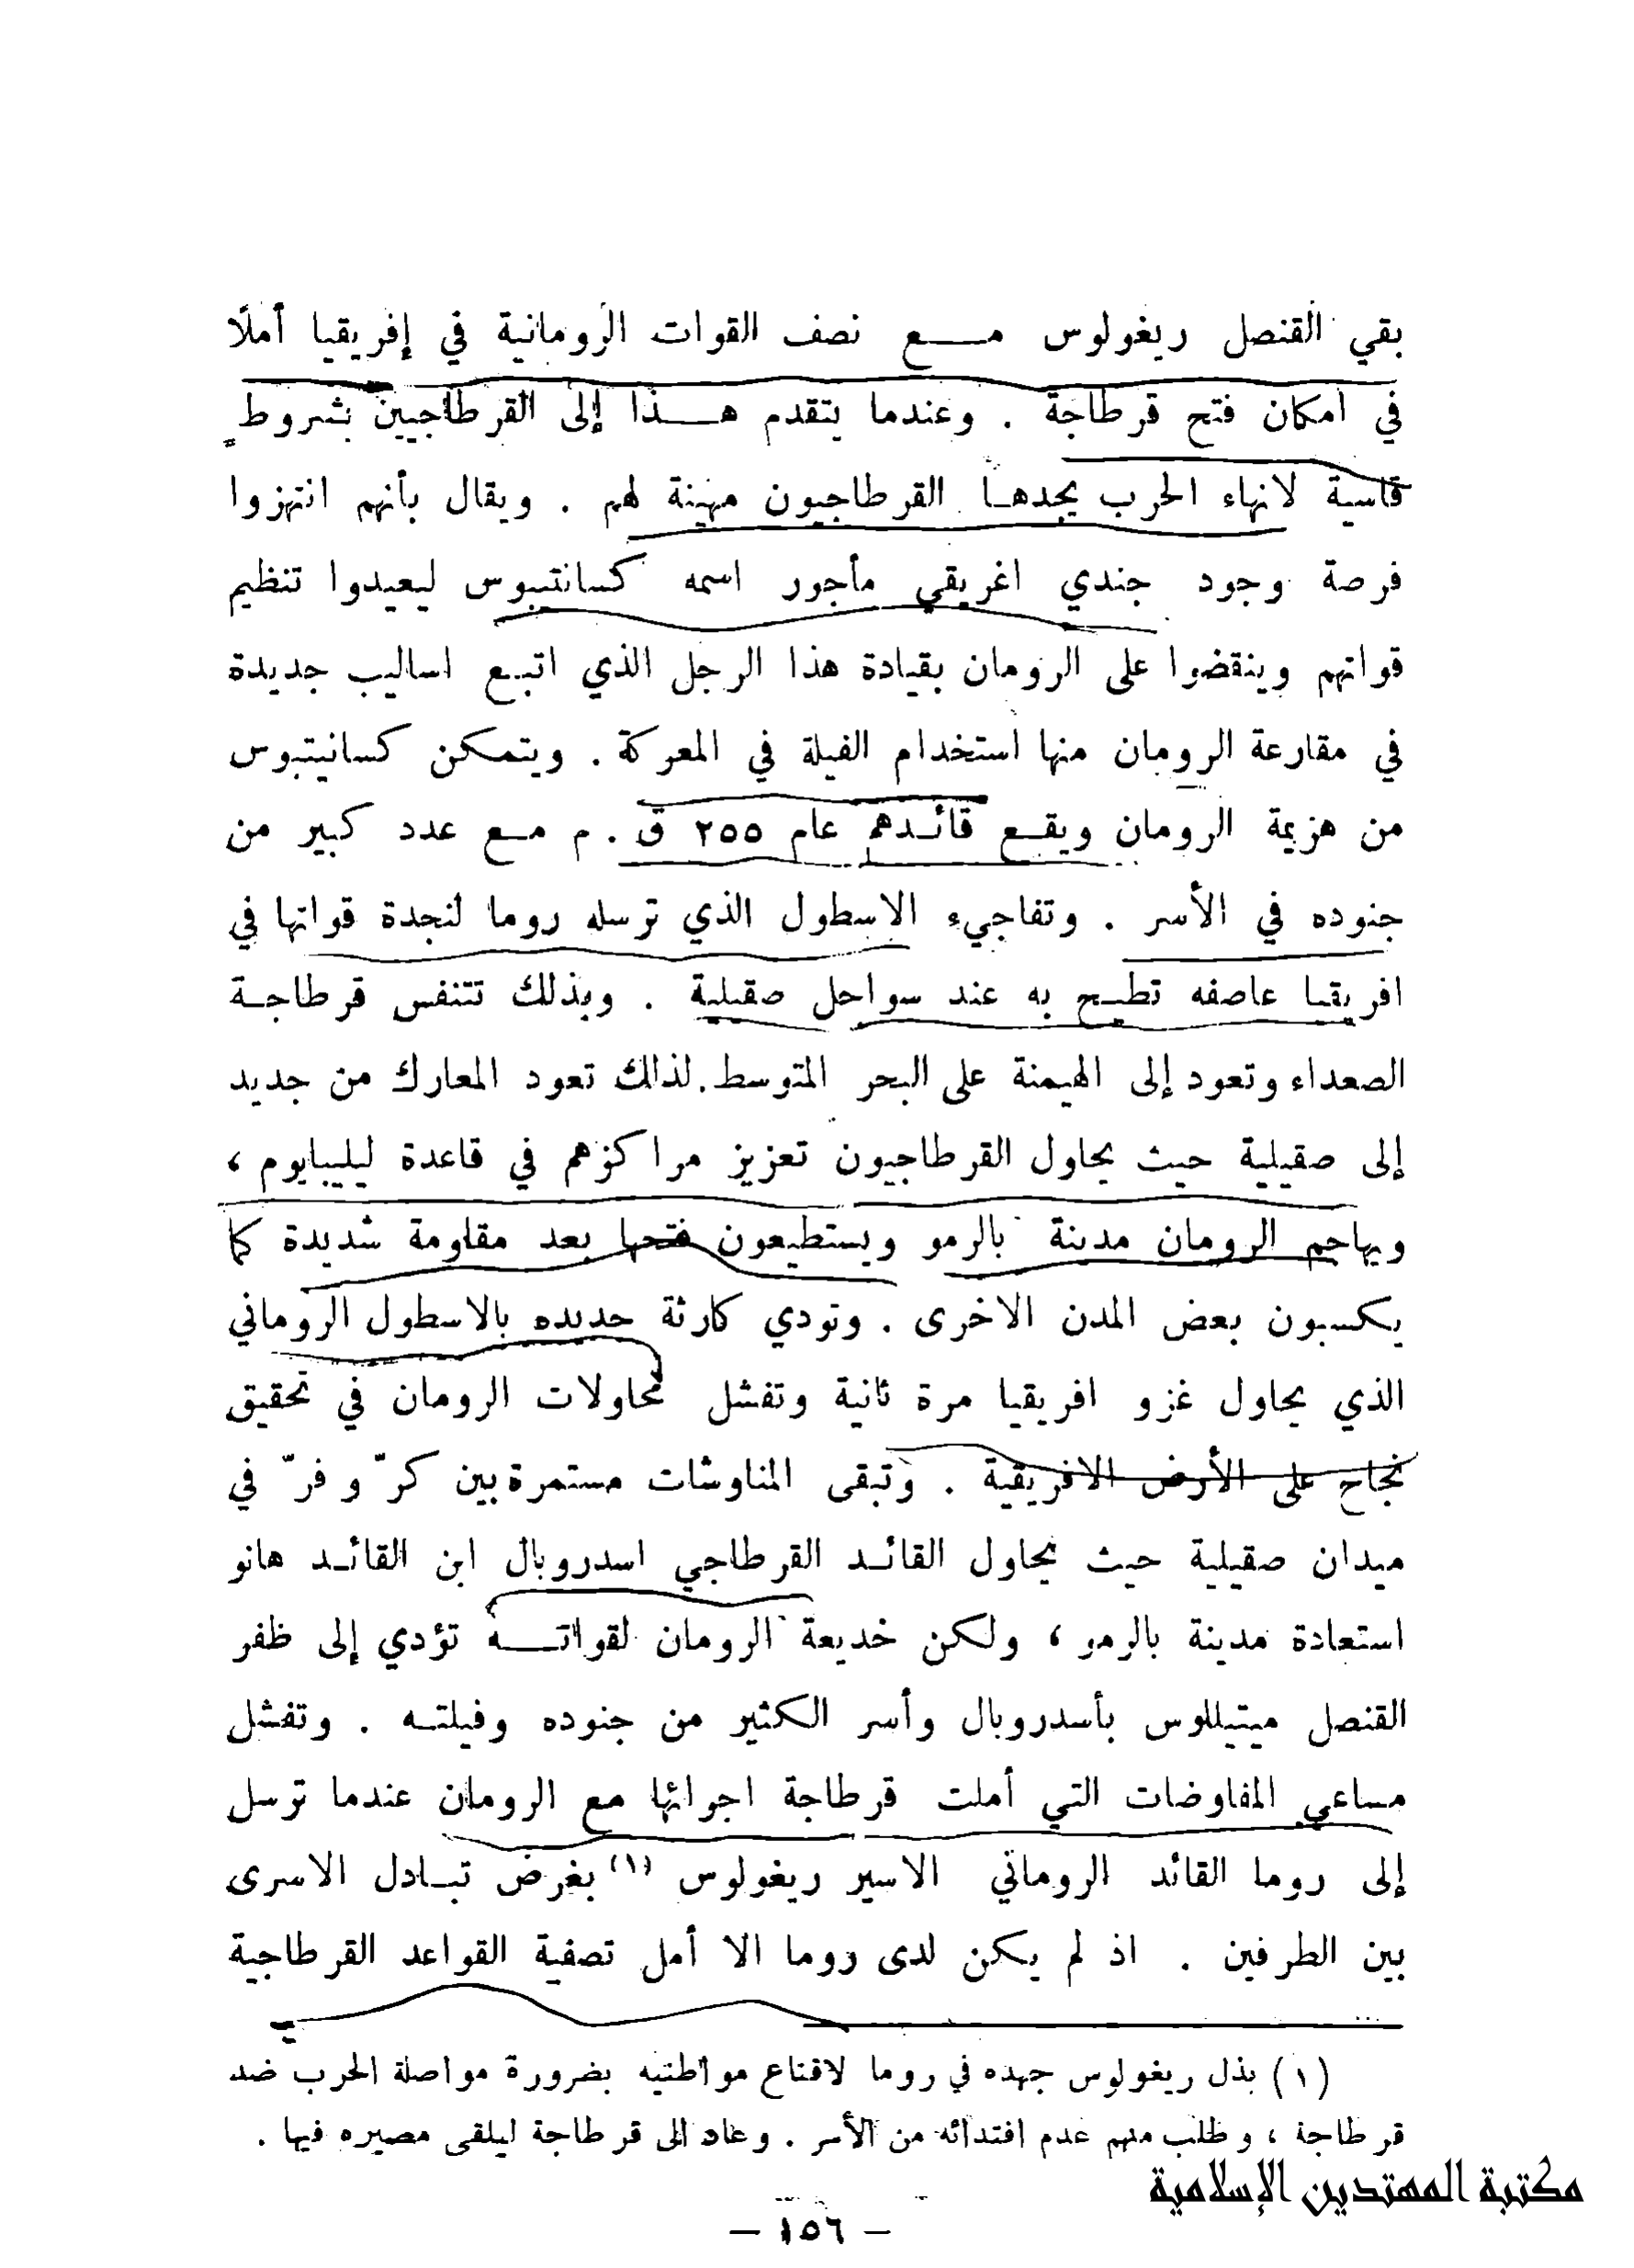 بقي القنصل ريغولوس مـــع نصف القوات الرومانية في إفريقيا أملًا
في امكان فتح قرطاجة . وعندما يتقدم هـــذا إلى القرطاجيين بشروطٍ
قاسية لانهاء الحرب يجدهـا القرطاجيون مهينة لهم . ويقال بأنهم انتهزوا
فرصة وجود جندي اغريقي مأجور اسمه كسانتيبوس ليعيدوا تنظيم
قواتهم وينقضوا على الرومان بقيادة هذا الرجل الذي اتبـع اساليب جديدة
في مقارعة الرومان منها استخدام الفيلة في المعركة . ويتمكن كسانيتبوس
من هزيمة الرومان ويقـع قائـدهم عام ٢٥٥ ق . م مـع عدد كبير من
جنوده في الأسر . وتفاجيء الاسطول الذي ترسله روما لنجدة قواتها في
افريقيا عاصفه تطيـح به عند سواحل صقيلية . وبذلك تتنفس قرطاجـة
الصعداء وتعود إلى الهيمنة على البحر المتوسط . لذلك تعود المعارك من جديد
إلى صقيلية حيث يحاول القرطاجيون تعزيز مراكزهم في قاعدة ليليبايوم ،
ويهاجم الرومان مدينة بالرمو ويستطيعون فتحها بعد مقاومة شديدة كما
يكسبون بعض المدن الاخرى . وتودي كارثة جديده بالاسطول الروماني
الذي يحاول غزو افريقيا مرة ثانية وتفشل محاولات الرومان في تحقيق
نجاح على الأرض الافريقية . وتبقى المناوشات مستمرة بين كرّ و فرّ في
ميدان صقيلية حيث يحاول القائـد القرطاجي اسدروبال ابن القائـد هانو
استعادة مدينة بالرمو ، ولكن خديعة الرومان لقواتـــه تؤدي إلى ظفر
القنصل ميتيللوس بأسدروبال وأسر الكثير من جنوده وفيلتـه . وتفشل
مساعي المفاوضات التي أملت قرطاجة اجرائها مع الرومان عندما ترسل
إلى روما القائد الروماني الاسير ريغولوس (١) بغرض تبـادل الاسرى
بين الطرفين . اذ لم يكن لدى روما الا أمل تصفية القواعد القرطاجية
(١) بذل ريغولوس جهده في روما لاقناع مواطنيه بضرورة مواصلة الحرب ضد
قرطاجة ، وطلب منهم عدم افتدائه من الأسر . وعاد الى قرطاجة ليلقى مصيره فيها .
مكتبة المهتدين الإسلامية
– ١٥٦ –